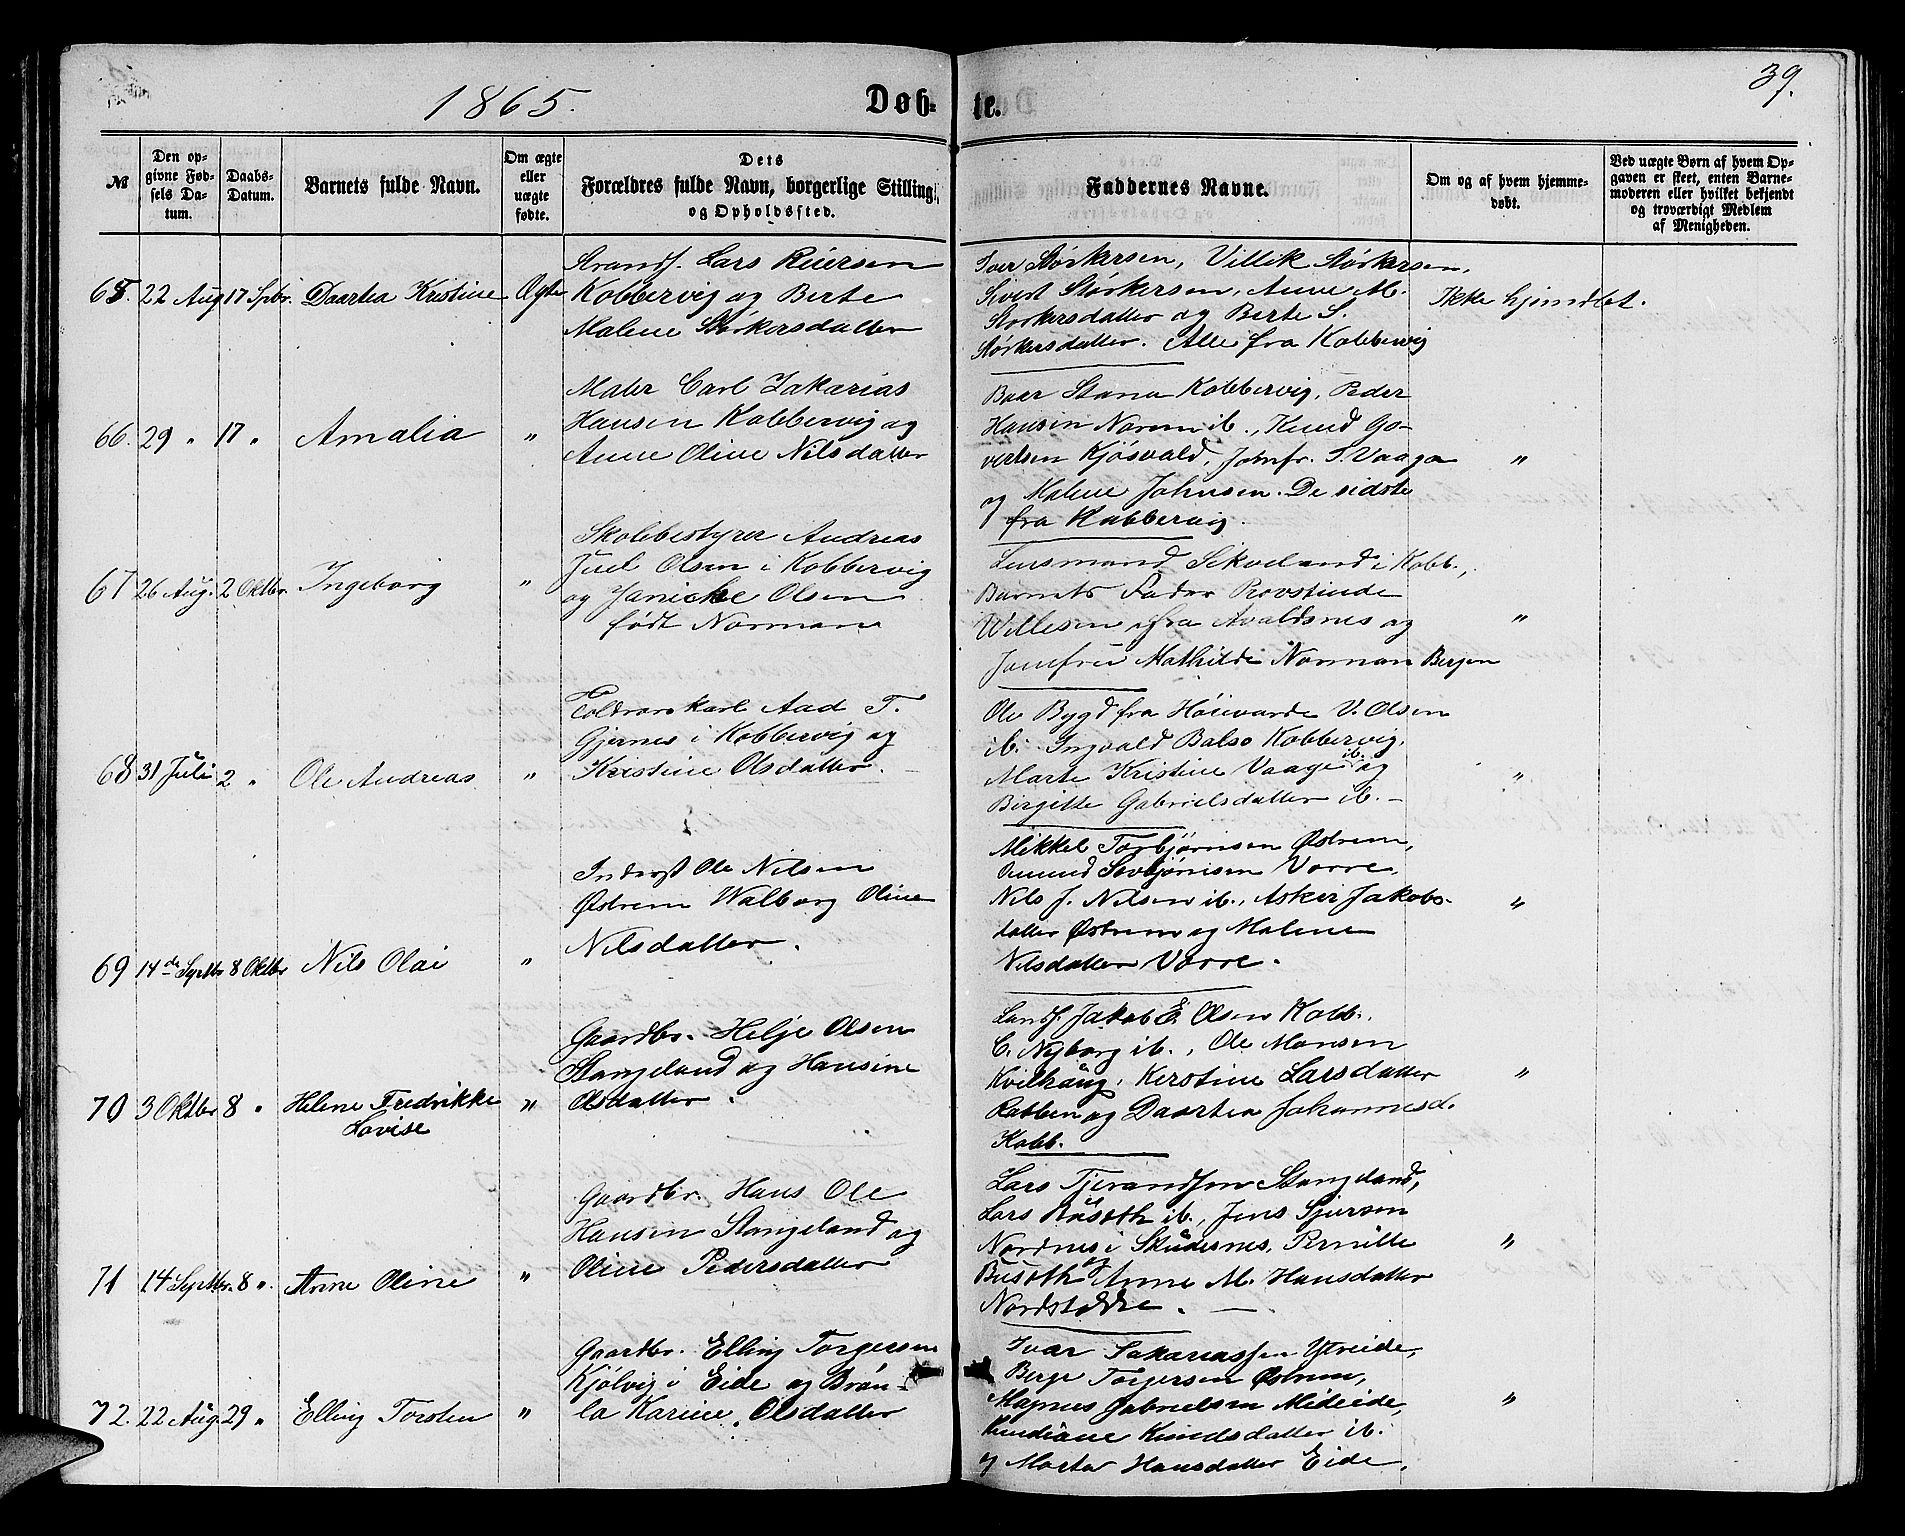 1865.
Døb-
te.
39.
№
Den op-
givne Fød-
sels Da-
tum.
Daabs-
Datum.
Barnets fulde Navn.
Om ægte
eller
uægte
fødte.
Dets
Forældres fulde Navn, borgerlige Stilling
og Opholdssted.
Faddernes Navne.
Om og af hvem hjemme-
døbt.
Ved uægte Børn af hvem Op-
gaven er skeet, enten Barne-
moderen eller hvilket bekjendt
og troværdigt Medlem
af Menigheden.
65. 22 Aug 17 Spbr. Daartea Kristine Ægte
Strands. Lars Reiersen
Kobbervig og Berte
Malene Størkersdatter
Iver Størkersen, Villik Størkersen,
Sivert Størkersen, Anne M.
Størkersdatter og Berte S.
Størkersdatter. Alle fra Kobbervig
Ikke hjemdbt.
66. 29 " 17 " Amalia "
Maler Carl Zakarias
Hansen Kobbervig og
Anne Oline Nilsdatter
Baar Stana Kobbervig, Peder
Hansen Norem ib., Knud Go-
vertsen Kjøsvald, Jomfr. S. Vaaga
og Malene Johnsen. De sidste
fra Kobbervig.
"
67 26 Aug. 2 Oktbr. Ingeborg "
Skolebestyrer Andreas
Juel Olsen i Kobbervig
og Janicke Olsen
født Norman
Lensmand Sikveland i Kobb.,
Barnets Fader Provstinde
Willesen fra Avaldsnes og
Jomfru Mathilde Norman Bergen
"
68 31 Juli 2 " Ole Andreas "
Toldrorskarl Aad T.
Gjernes i Kobbervig og
Kristine Olsdatter.
Ole Bygd fra Høievarde V. Olsen
ib. Ingvald Balso Kobbervig,
Marte Kristine Vaage ib. og
Birgitte Gabrielsdatter ib. –
"
69 14de Septbr 8 Oktbr Nils Olai "
Inderst Ole Nilsen
Østrem Walborg Oline
Nilsdatter.
Mikkel Torbjørnsen Østrem,
Omund Torbjørnsen Vorre,
Nils J. Nilsen ib., Asker Jakobs-
datter Østrem og Malene
Nilsdatter Vorre.
"
70 3 Oktbr 8 " Helene Fredrikke
Lovise "
Gaardbr. Helje Olsen
Stangeland og Hansine
Olsdatter.
Landh. Jakob E. Olsen Kobb.
C. Nyborg ib., Ole Monsen
Kvilhaug, Kerstine Larsdatter
Rabben og Daartea Johannesd.
Kobb.
"
71 14 Septbr. 8 " Anne Oline "
Gaardbr. Hans Ole
Hansen Stangeland og
Oline Pedersdatter
Lars Tjerandsen Stangeland,
Lars Buseth ib., Jens Sjursen
Nordnes i Skudesnes, Pernille
Buseth og Anne M. Hansdatter
Nordstokke. –
"
72. 22 Aug. 29 " Elling Torsten "
Gaardbr. Elling Torgersen
Kjølvig i Eide og Brøn-
la Karine Olsdatter
Ivar Sakariassen Ytreide,
Berge Torgersen Østrem,
Magnus Gabrielsen Mideide,
Knudiane Knudsdatter ib.
og Marta Hansdatter Eide.
"